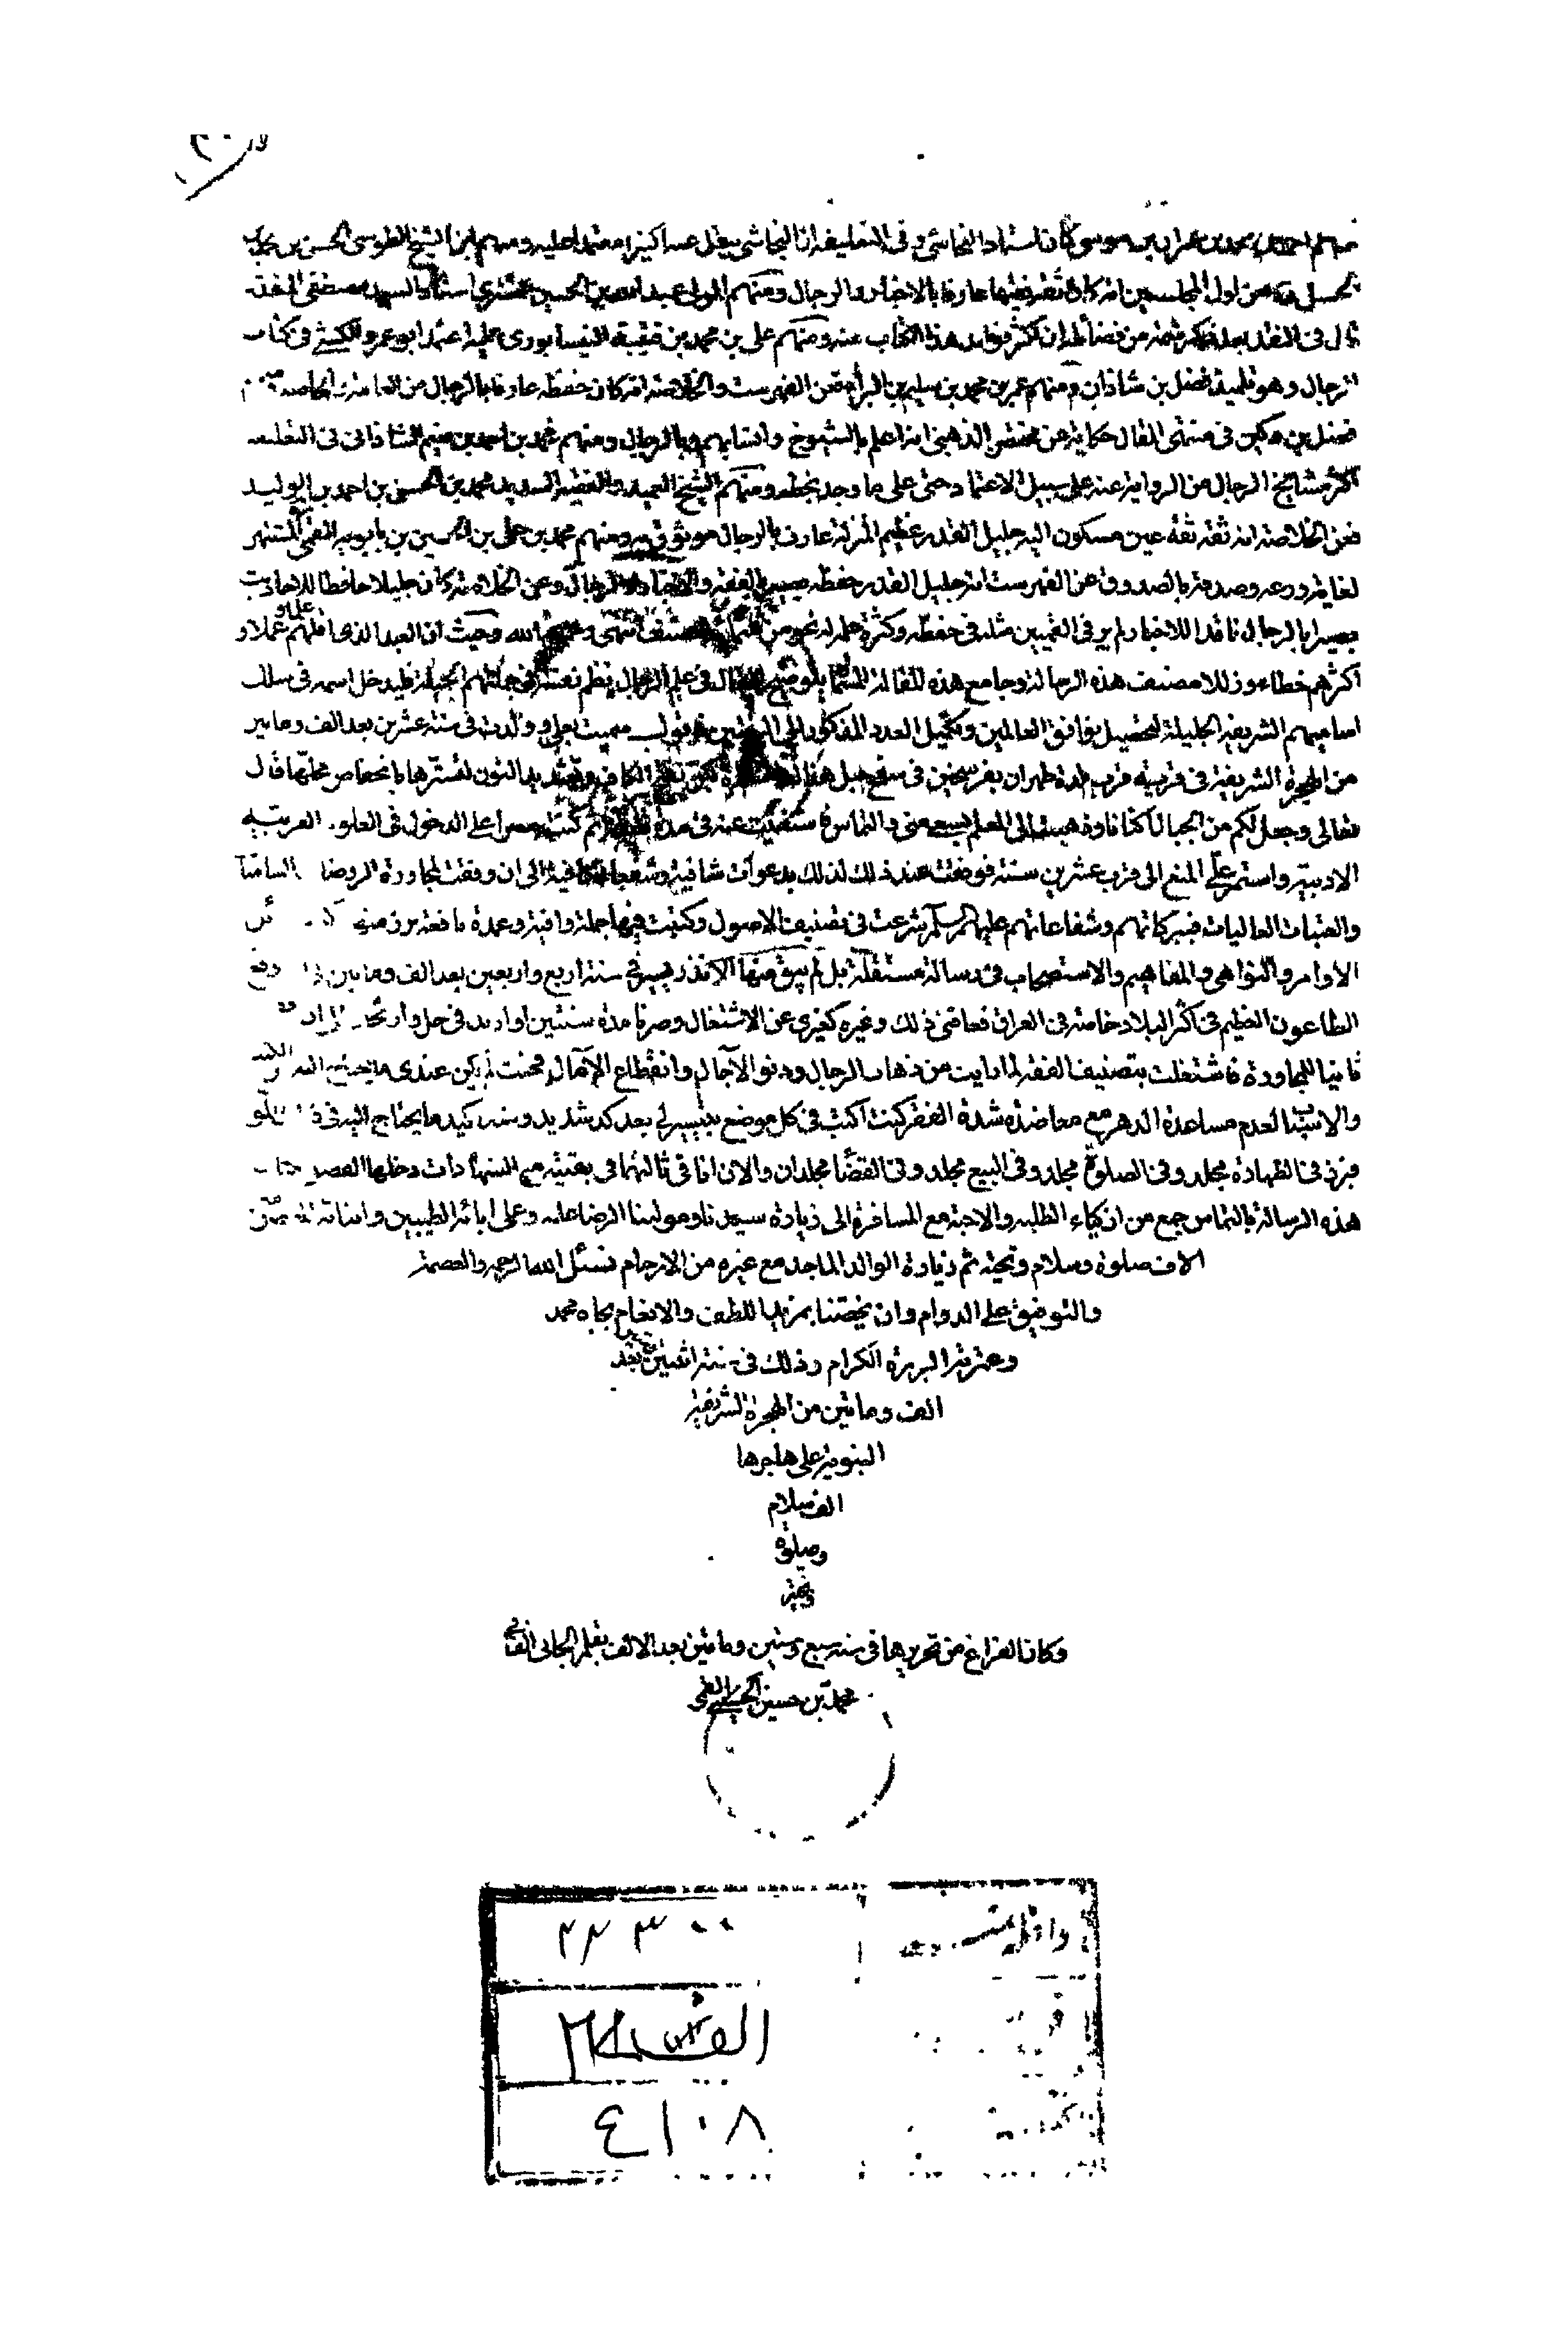 منهم احمد بن محمد بن عمران بن موسى كان استاد النجاشى وفى التعليقة ان النجاشى ينقل عنه كثيرا معتمدا عليه ومنهم ابن الشيخ الطوسى الحسن بن محمد بن
الحسن فعن اول المجلسيين انه كان ثقة فقيها عارفا بالاخبار والرجال ومنهم المولى عبد الله بن الحسين التسترى استاد السيد مصطفى
قال فى النقد بعد ذكر من فضائله ان اكثر فوايد هذا الكتاب منه ومنهم على بن محمد بن قتيبة النيسابورى عليه اعتمد ابو عمرو الكشى فى كتاب
الرجال وهو تلميذ فضل بن شاذان ومنهم عمر بن محمد بن سليم بن البراء فعن الفهرست والخلاصة انه كان حفظة عارفا بالرجال من العامة والخاصة ومنهم
فضل بن دكين فى منتهى المقال حكاية عن مختصر الذهبى انه اعلم بالشيوخ وانسابهم وبالرجال ومنهم محمد بن احمد بن نعيم الشاذانى فى التعليقة
اكثر مشايخ الرجال من الرواية عنه على سبيل الاعتماد حتى على ما وجد بخطه ومنهم الشيخ العميد والفقيه السديد محمد بن الحسن بن احمد بن الوليد
فعن الخلاصة انه ثقة ثقة عين مسكون اليه جليل القدر عظيم المنزلة عارف بالرجال موثوق به ومنهم محمد بن على بن الحسين بن بابويه القمى المشتهر
لغاية ورعه وصدقه بالصدوق عن الفهرست انه جليل القدر حفظة بصير بالفقه والاخبار والرجال وعن الخلاصة كان جليلا حافظا للاحاديث
بصيرا بالرجال ناقدا للاخبار لم ير فى القميين مثله فى حفظه وكثرة علمه له نحو من ثلثمائة مصنف انتهى الله وحيث ان العبد الذى اقلهم علما وعملا و
اكثرهم خطاء وزللا مصنف هذه الرسالة وجامع هذه المقالة المسماة بتوضيح المقال فى علم الرجال ينظم نفسه فى جملتهم الجليلة ليدخل اسمه فى سلك
اساميهم الشريفة الجليلة لتحصيل توافق العالمين وتكميل العدد المذكور فنقول سميت بعلى وولدت فى سنة عشرين بعد الف ومأتين
من الهجرة الشريفة فى قرية قرب بلدة طهران بفرسخين فى سفح جبل هناك كن بفتح الكاف وتشديد النون لتسترها بانخفاض محلها قال
تعالى وجعل لكم من الجبال اكنانا وذهبت الى المعلم بسعى منى والتماس فاستغنيت عنه فى مدة ثم كنت مصرا على الدخول فى العلوم العربية
الادبية واستمر على المنع الى قرب عشرين سنة فوفقت عند ذلك لذلك بدعوات شافية وشفعاء كافية الى ان وفقت لمجاورة الروضات السامية
والعتبات العاليات فببركاتهم وشفاعاتهم عليهم السلم شرعت فى تصنيف الاصول وكتبت فيها جملة وافية وعدة نافعة برز منها
الاوامر والنواهى والمفاهيم والاستصحاب فى رسالة مستقلة بل لم يبق منها الا نذر يسير فى سنة اربع واربعين بعد الف ومأتين وقع
الطاعون العظيم فى اكثر البلاد خاصة فى العراق فعاقنى ذلك وغيره كغيرى عن الاشتغال وصرنا مدة سنتين او ازيد فى حل وارتحال
ثانيا للمجاورة فاشتغلت بتصنيف الفقه لما رايت من ذهاب الرجال ودنو الآجال وانقطاع الآمال فحيث لم يكن عندى ما يحتاج اليه الكتب
والاسباب لعدم مساعدة الدهر مع معاضدة شدة الفقر كنت اكتب فى كل موضع يتيسر لى بعد كد شديد وسهر اكيد ما يحتاج اليه فى
فبرز فى الطهارة مجلد وفى الصلوة مجلد وفى البيع مجلد وفى القضا مجلدان والان انا فى ثالثهما فى بقية من الشهادات دخلها القصد
هذه الرسالة بالتماس جمع من اذكياء الطلبة والاحبة مع المسافرة الى زيارة سيدنا ومولينا الرضا عليه وعلى ابائه الطيبين وابنائه المعصومين
الاف صلوة وسلام وتحية ثم زيارة الوالد الماجد مع غيره من الارحام نسئل الله الرحمة والعصمة
والتوفيق على الدوام وان يختصنا بمزايا اللطف والانعام بجاه محمد
وعترته البررة الكرام وذلك فى سنة اثنتين بعد
الف ومأتين من الهجرة الشريفة
النبوية على هاجرها
الف سلام
وصلوة
وتحية
وكان الفراغ من تحريرها فى سنه سبع وستين ومأتين بعد الالف بقلم الجانى الفانى
محمد بن حسين الحسينى القمى
٢٢٣٠٠
٤١٠٨